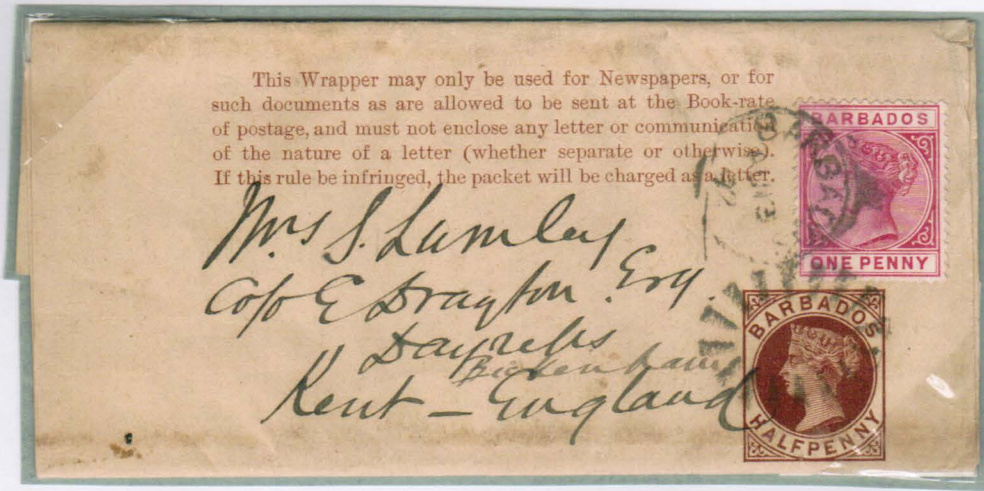 This Wrapper may only be used for Newspapers, or for
such documents as are allowed to be sent at the Book-rate
of postage, and must not enclose any letter or communication
of the nature of a letter (whether separate or otherwise).
If this rule be infringed, the packet will be charged as a letter.
BARBADOS
ONE PENNY
Mrs S. Lumley
E Drayton Esq.
Dayrells
Kent – England
BARBADOS
HALFPENNY